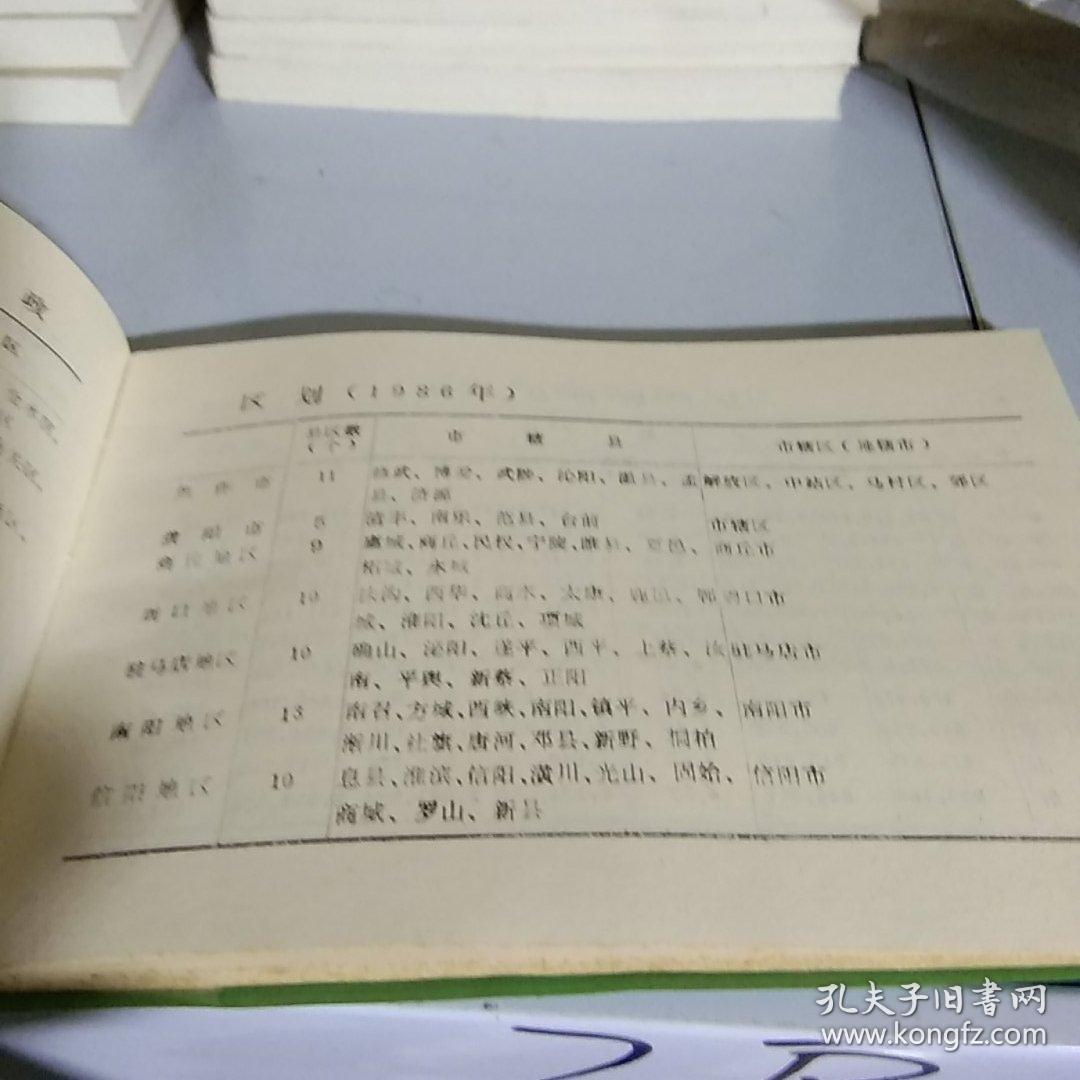 政
区
金水区、
区
区、
区 划（1986年）
县区数
（个）
市 辖 县
市辖区（地辖市）
焦作市 11 修武、博爱、武陟、沁阳、温县、孟 解放区、中站区、马村区、郊区
县、济源
濮阳市 5 清丰、南乐、范县、台前 市辖区
商丘地区 9 虞城、商丘、民权、宁陵、睢县、夏邑、 商丘市
柘城、永城
周口地区 10 扶沟、西华、商水、太康、鹿邑、郸 周口市
城、淮阳、沈丘、项城
驻马店地区 10 确山、泌阳、遂平、西平、上蔡、汝 驻马店市
南、平舆、新蔡、正阳
南阳地区 13 南召、方城、西峡、南阳、镇平、内乡、 南阳市
淅川、社旗、唐河、邓县、新野、桐柏
信阳地区 10 息县、淮滨、信阳、潢川、光山、固始、 信阳市
商城、罗山、新县
孔夫子旧書网
www.kongfz.com